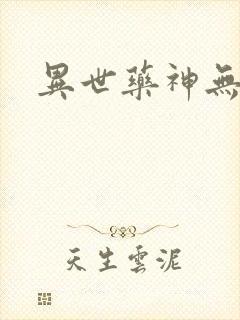 異世藥神無
天生雲泥